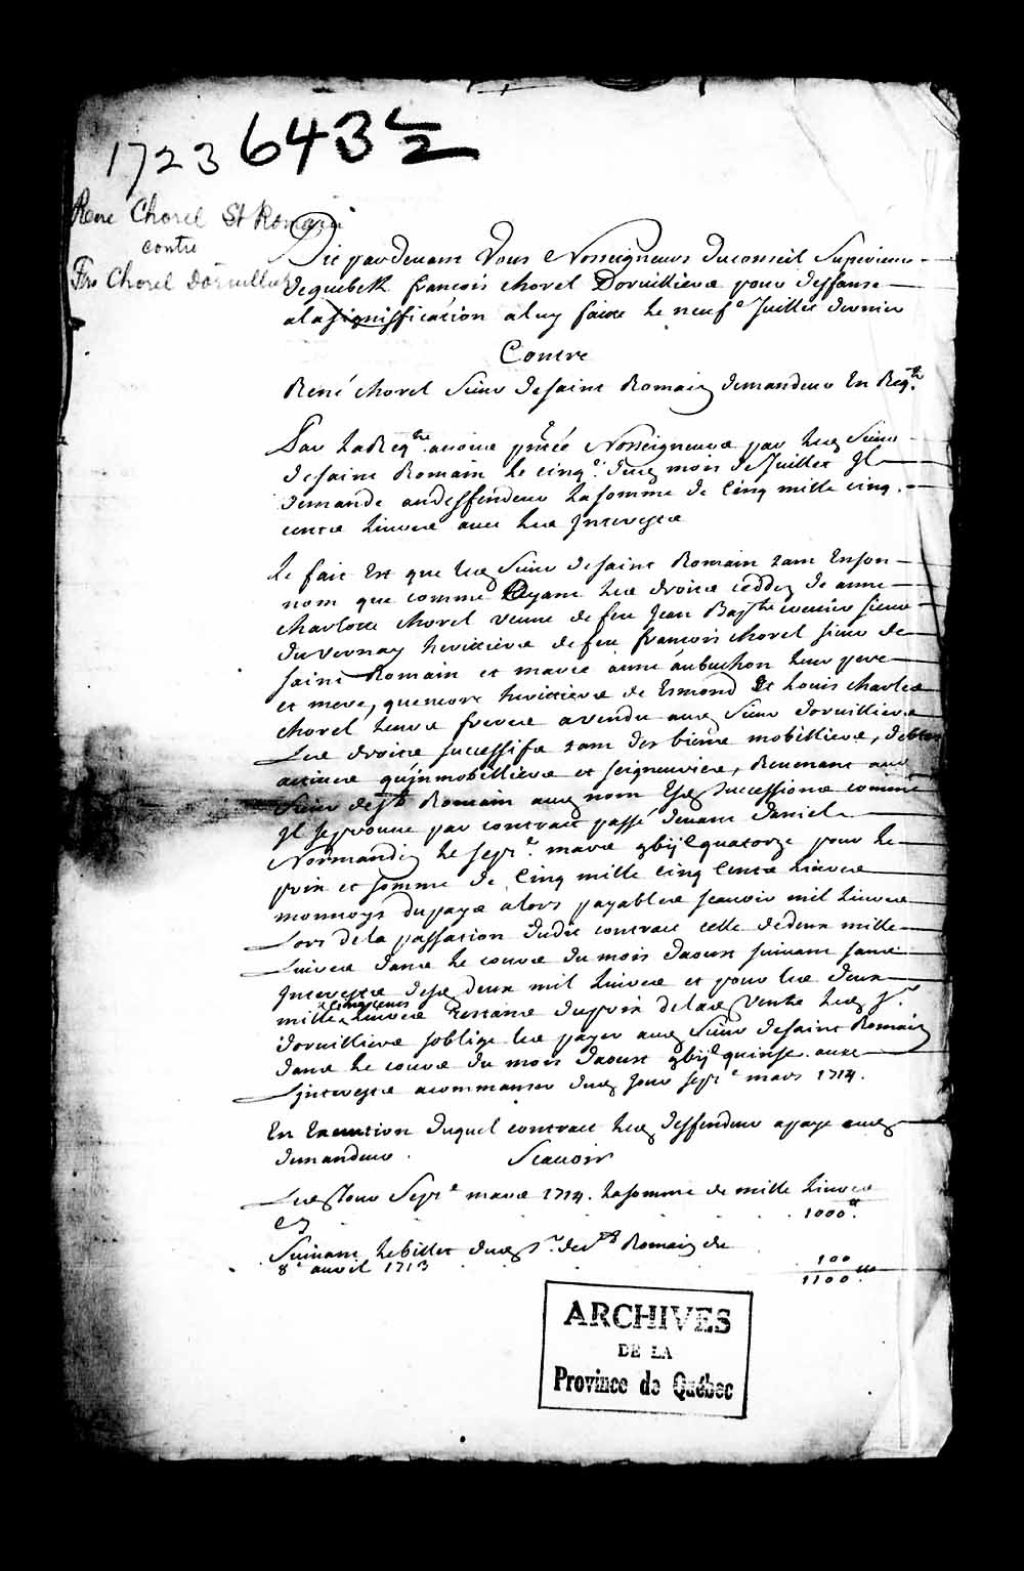 1723 643 1/2
René Chorel St Romain
contre
Frs Chorel Dorvilliers
Dit pardevant Vous Nosseigneurs du conseil Superieur
de quebek francois chorel Dorvilliers pour deffanse
a la signiffication a luy faitte le neufe Juillet dernier
Contre
René chorel sieur de saint Romain demandeur En Reqte
Par la Reqte avous pntée Nosseigneurs par led Sieur
de saint Romain le cinqe dud mois de Juillet Il
demande au deffendeur la somme de Cinq mille cinq
cents livres avec les Interests
le fait Est que led Sieur de saint Romain tant En son
nom que comme Ayant les droits ceddez de anne
charlotte chorel veuve de feu Jean Bapte couttier sieur
du vernay herittiers de feu francois chorel sieur de
saint Romain et marie anne aubuchon leur pere
et mere, quencore herittiers de Esmond Et Louis charles
chorel leurs freres a vendu aud Sieur dorvilliers
Les droits successifs tant des biens mobilliers, debtes
actives qu'inmobilliers et seigneuries, Revenant aud
Sieur de st Romain aud nom Esd successions comme
Il se prouve par contract passé devant daniel
Normandin le sepe mars gbijc quatorze pour le
prix et somme de Cinq mille cinq Cents livres
monnoys du pays alors payables scavoir mil livres
Lors de la passation dudit contract celle de deux mille
Livres dans le cours du mois daoust suivant sans
Interests desd deux mil livres et pour les deux
mille cinq cens livres restans du prix de lad vente led sr
dorvilliers soblige les payer aud Sieur de saint Romain
dans le cours du mois daoust gbijc quinze avec
Linterests a commanser dud jour sepe mars 1714.
En Execution duquel contract led deffendeur a payé aud
demandeur. Scavoir
Led Jour Sepe mars 1714. la somme de mille livres
cy 1000 ₶.
Suivant le billet dud sr. de st Romain du
8e avril 1713 100
1100 ₶
ARCHIVES
DE LA
Province de Québec